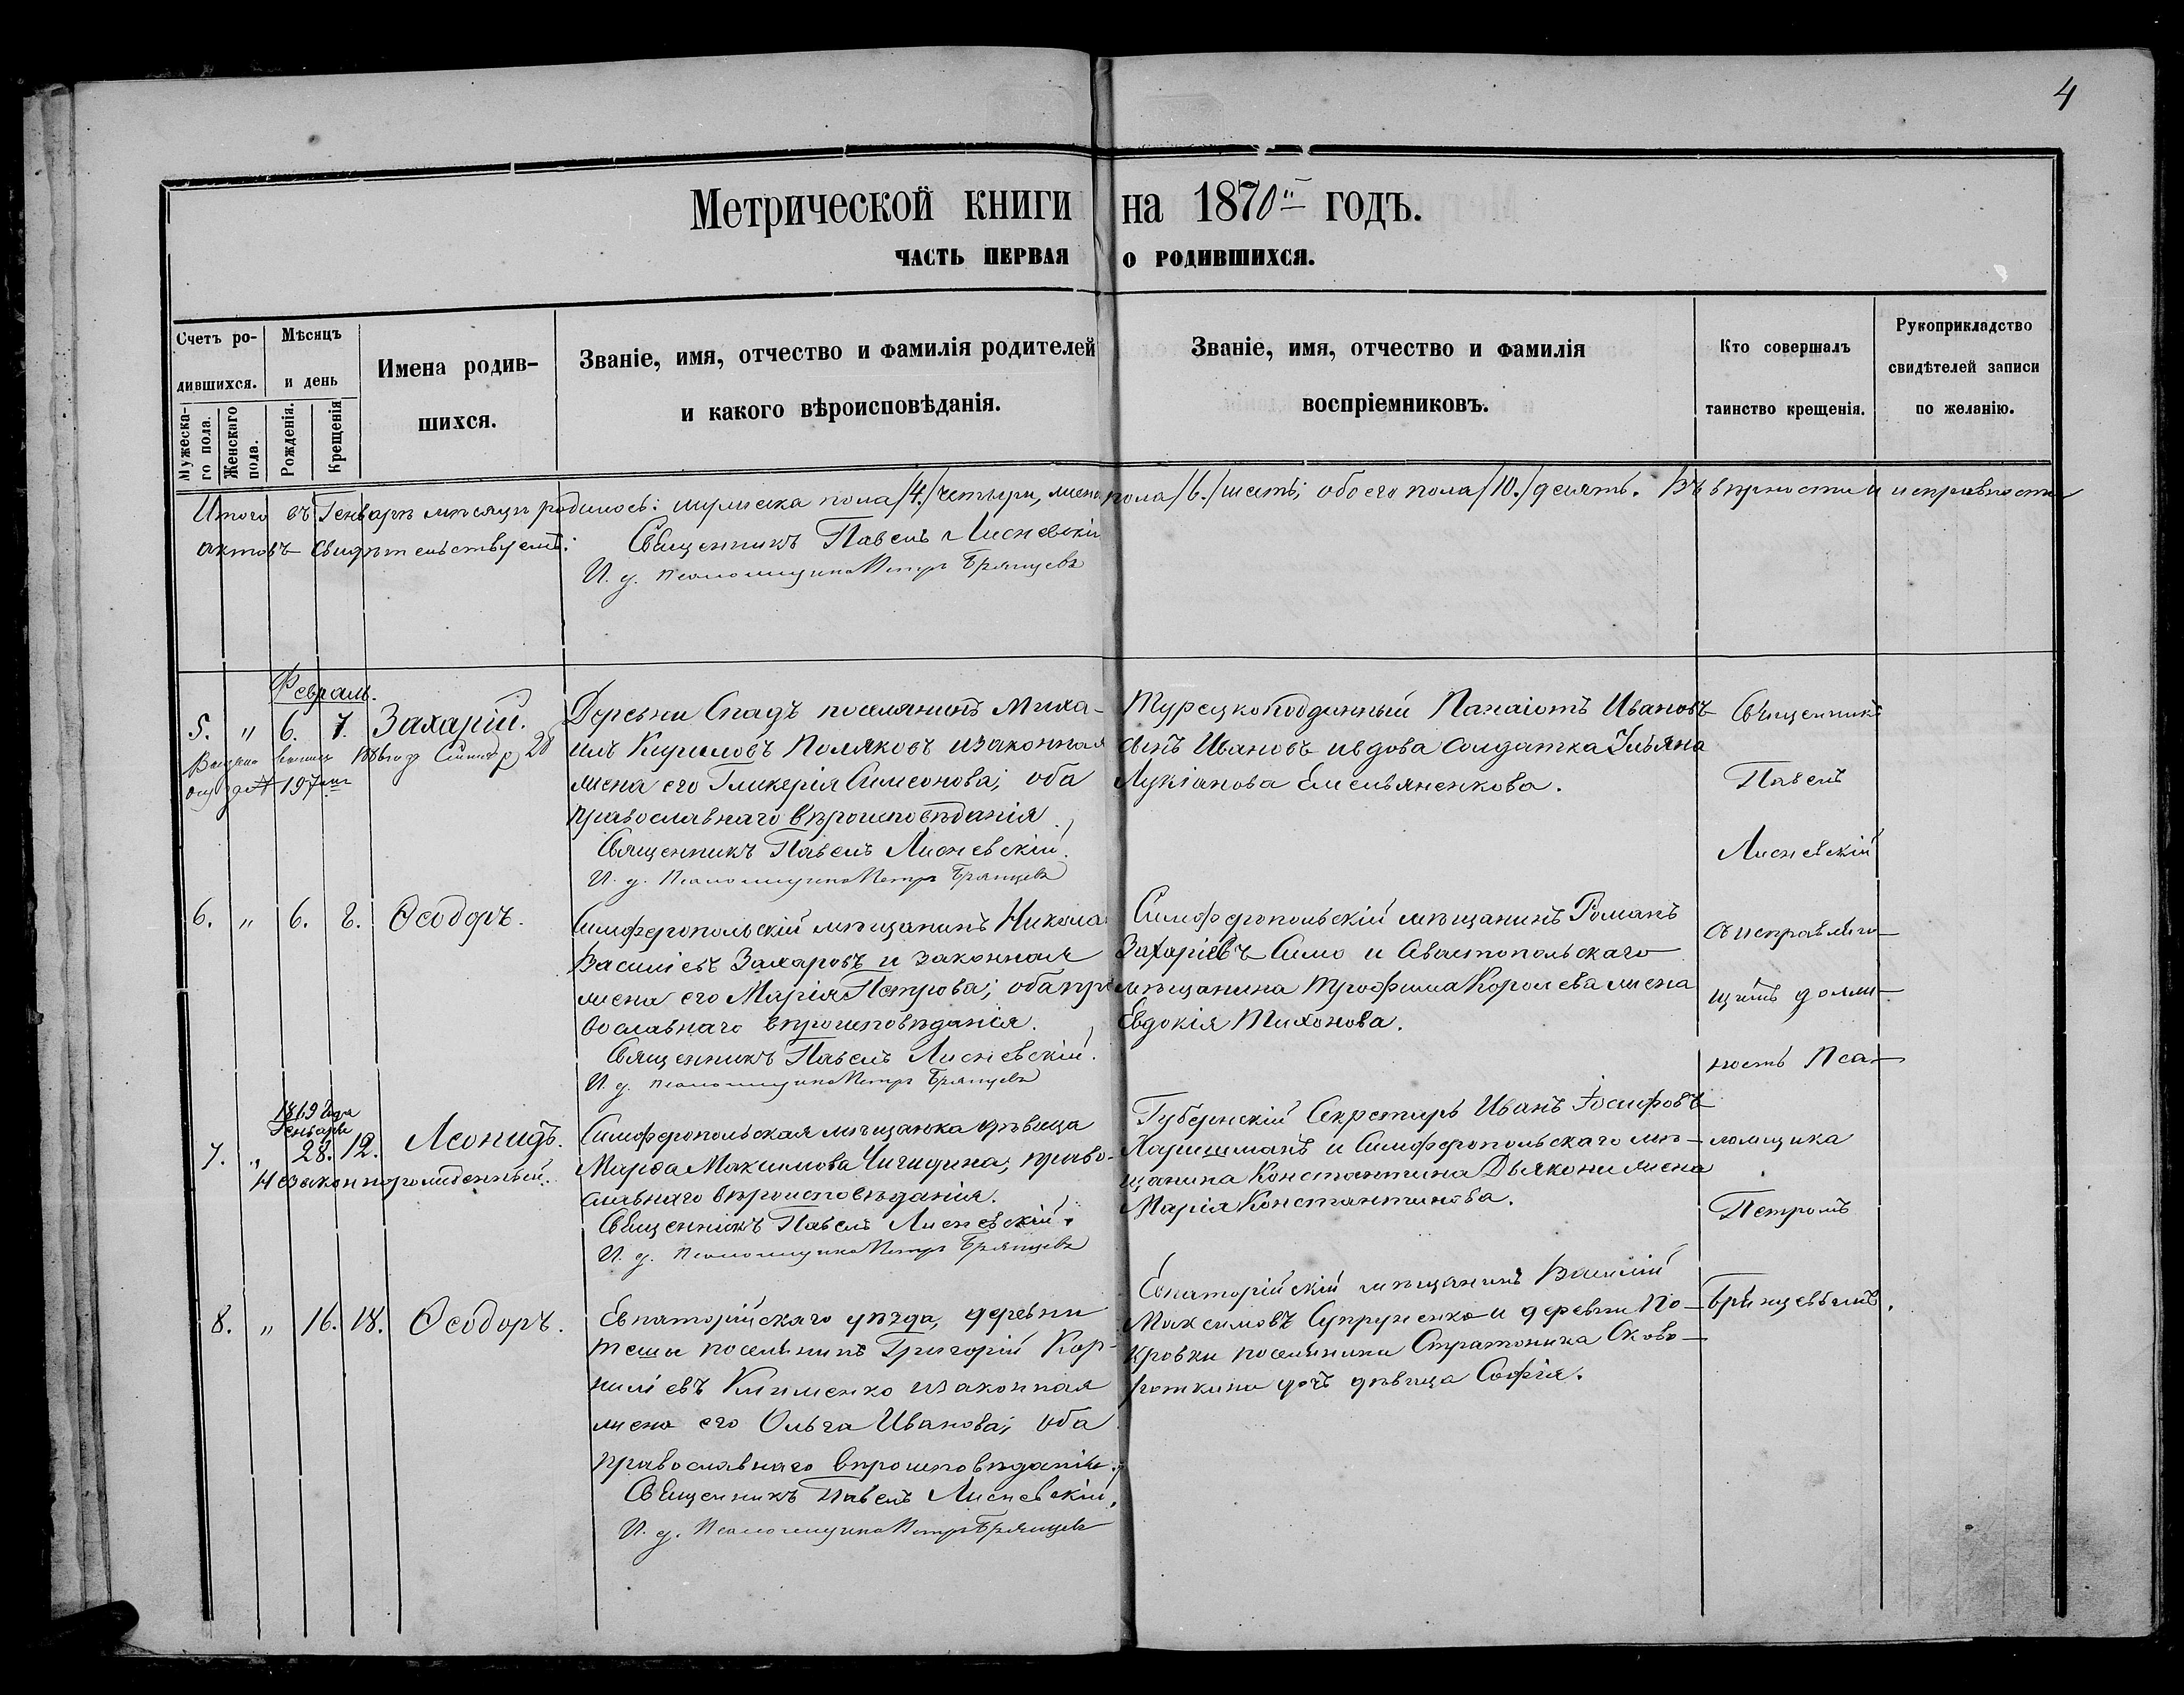 4
Метрической книги на 1870й годъ.
ЧАСТЬ ПЕРВАЯ О РОДИВШИХСЯ.
Счетъ ро-
дившихся.
Мужеска-
го пола.
Женскаго
пола.
Мѣсяцъ
и день
Рожденія.
Крещенія
Имена родив-
шихся.
Званіе, имя, отчество и фамилія родителей
и какого вѣроисповѣданія.
Званіе, имя, отчество и фамилія
воспріемниковъ.
Кто совершалъ
таинство крещенія.
Рукоприкладство
свидѣтелей записи
по желанію.
Итого въ Генварѣ мѣсяцѣ родилось: мужеска пола /4./ четыри, женска пола /6./ шесть; обоего пола /10./ десять. Въ вѣрности и исправности
актовъ свидѣтельствуемъ: Священникъ Павелъ Лисневскій
И. д. псаломщика Петръ Брянцевъ
Февраль.
5. " 6. 7. Захарій.
197
Деревни Спадъ поселянинъ Миха-
илъ Кириловъ Поляковъ и законная
жена его Гликерія Симеонова; оба
православнаго вѣроисповѣданія.
Священникъ Павелъ Лисневскій.
И. д. Псаломщика Петръ Брянцевъ
Турецкоподданный Панаіотъ Ивановъ
сынъ Ивановъ и вдова солдатка Ульяна
Лукіанова Емельяненкова.
Священникъ
Павелъ
Лисневскій
съ исправляю-
щимъ долж-
ность Пса-
ломщика
Петромъ
Брянцевымъ.
6. " 6. 8. Ѳеодоръ.
Симферопольскій мѣщанинъ Никола
Василіевъ Захаровъ и законная
жена его Марія Петрова; оба пра
вославнаго вѣроисповѣданія.
Священникъ Павелъ Лисневскій.
И. д. псаломщика Петръ Брянцевъ
Симферопольскій мѣщанинъ Романъ
Захаріевъ Симо и Севастопольскаго
мѣщанина Трофима Королева жена
Евдокія Тихонова.
1869 года
Генваря
7. " 28. 12. Леонидъ.
Незаконнорожденный.
Симферопольская мѣщанка дѣвица
Марѳа Максимова Чигидина, право-
славнаго вѣроисповѣданія.
Священникъ Павелъ Лисневскій.
И. д. Псаломщика Петръ Брянцевъ
Губернскій Секретарь Иванъ Іосифовъ
Харишманъ и Симферопольскаго мѣ-
щанина Константина Дьякони жена
Марія Константинова.
8. " 16. 18. Ѳеодоръ.
Евпаторійскаго уѣзда, деревни
Тешы поселянинъ Григорій Кор-
ниліевъ Клименко и законная
жена его Ольга Иванова; оба
православнаго вѣроисповѣданія.
Священникъ Павелъ Лисневскій.
И. д. Псаломщика Петръ Брянцевъ
Евпаторійскій мѣщанинъ Василій
Максимовъ Супруненко и деревни По-
кровки поселянина Стратоника Сково-
роткина дочь дѣвица Софія.